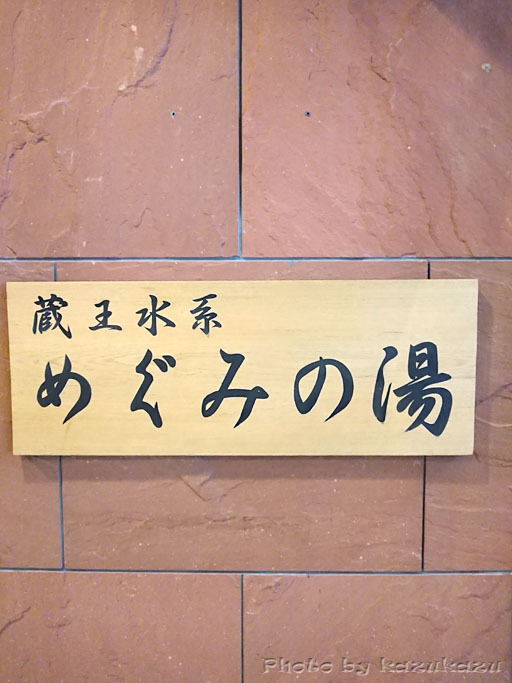 蔵王水系
めぐみの湯
Photo by kazukazu